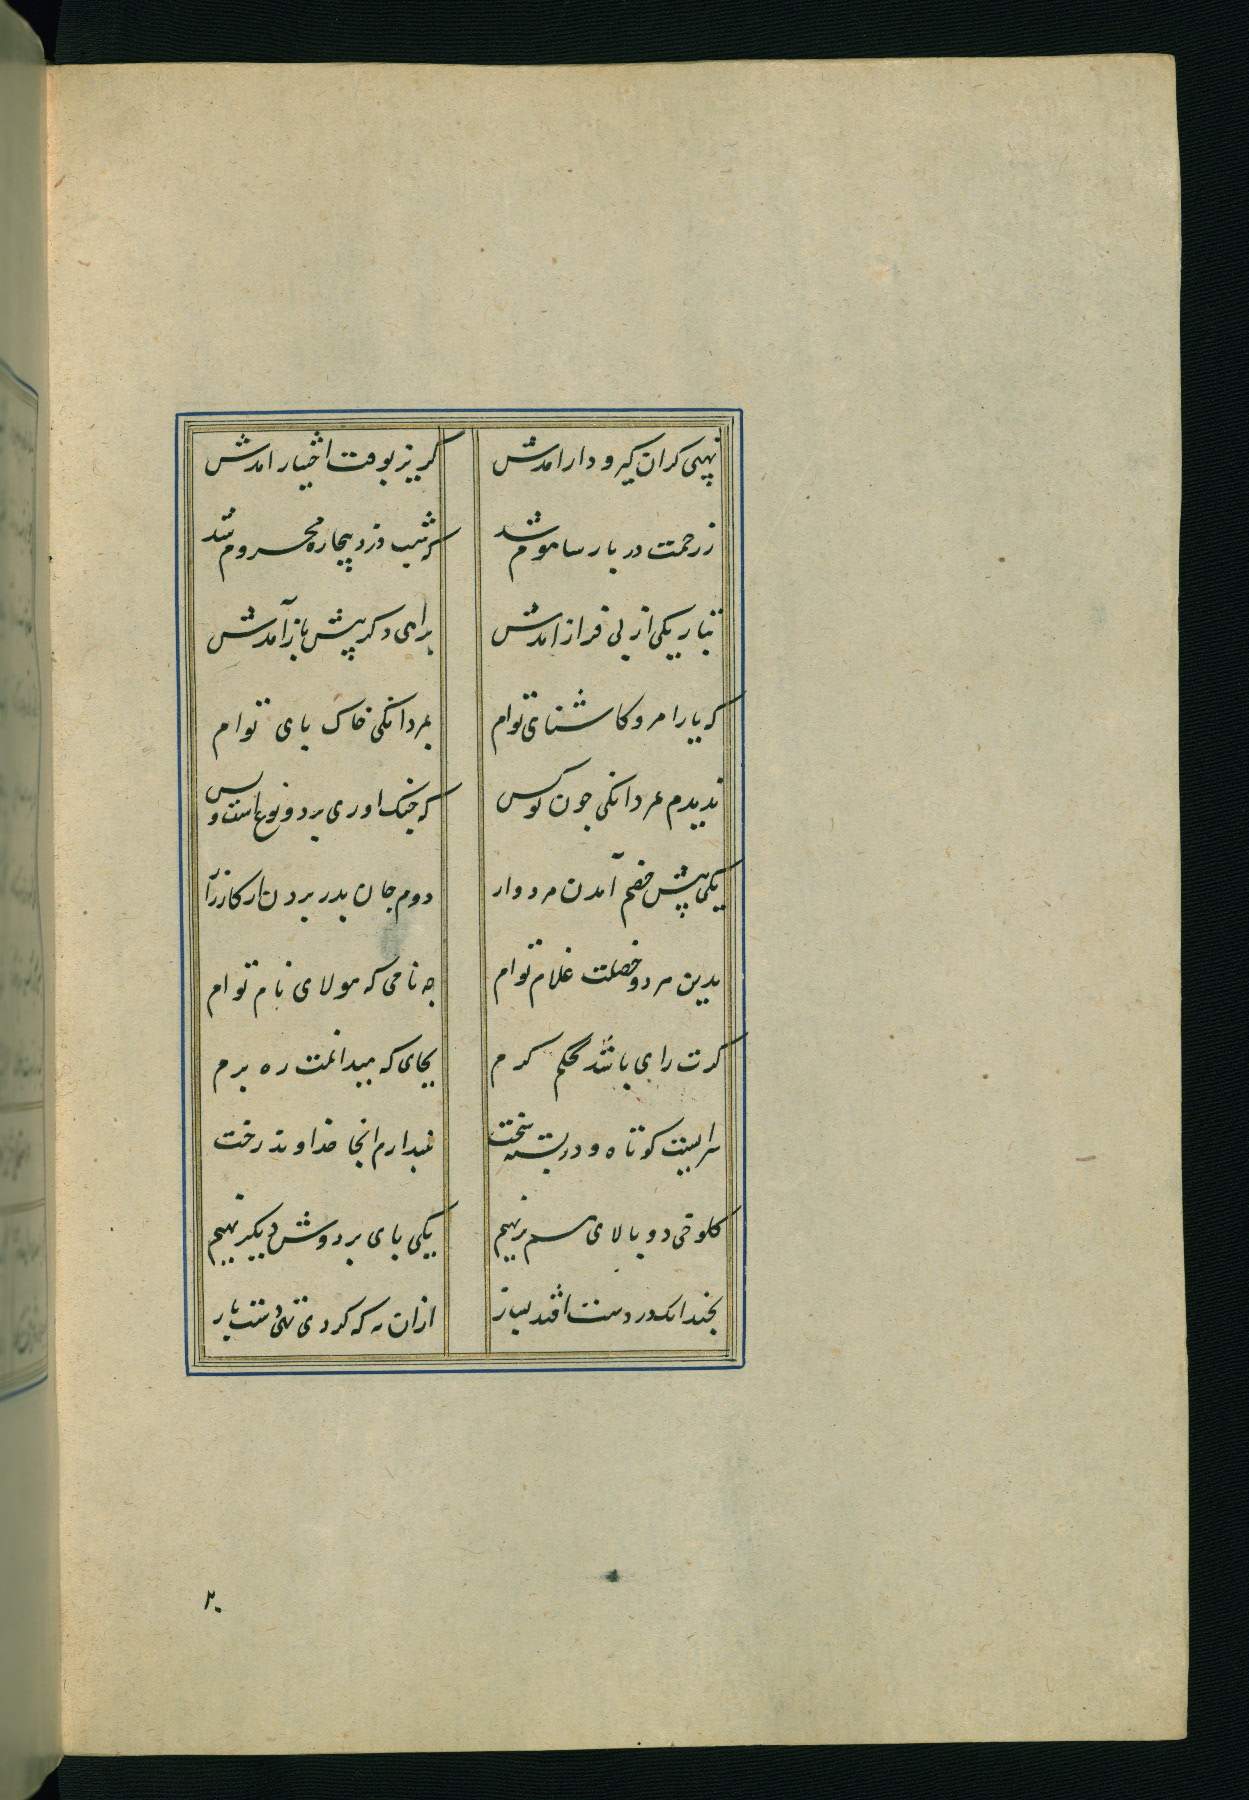 نهیبی کران کیر و دار امدش کریز بوقت اختیار امدش
ز رحمت در پارسا موم شد که شب دزد بیچاره محروم شد
بتاریکی از پی فراز امدش براهی دکر پیش باز آمدش
که یارا مرو کاشنای توام بمردانکی خاک پای توام
ندیدم بمردانکی چون تو کس که جنک اوری بر دو نوع است و بس
یکی پیش خصم آمدن مردوار دوم جان بدر بردن از کارزار
بدین هر دو خصلت غلام توام چه نامی که مولای نام توام
کرت رای باشد بحکم کرم بجای که میدانمت ره برم
سراییست کوتاه و در بسته سخت نپندارم انجا خداوند رخت
کلوخی دو بالای هم بر نهیم یکی پای بر دوش دیکر نهیم
بچندانک در دستت افتد بساز ازان به که کردی تهی دست باز
۲۰